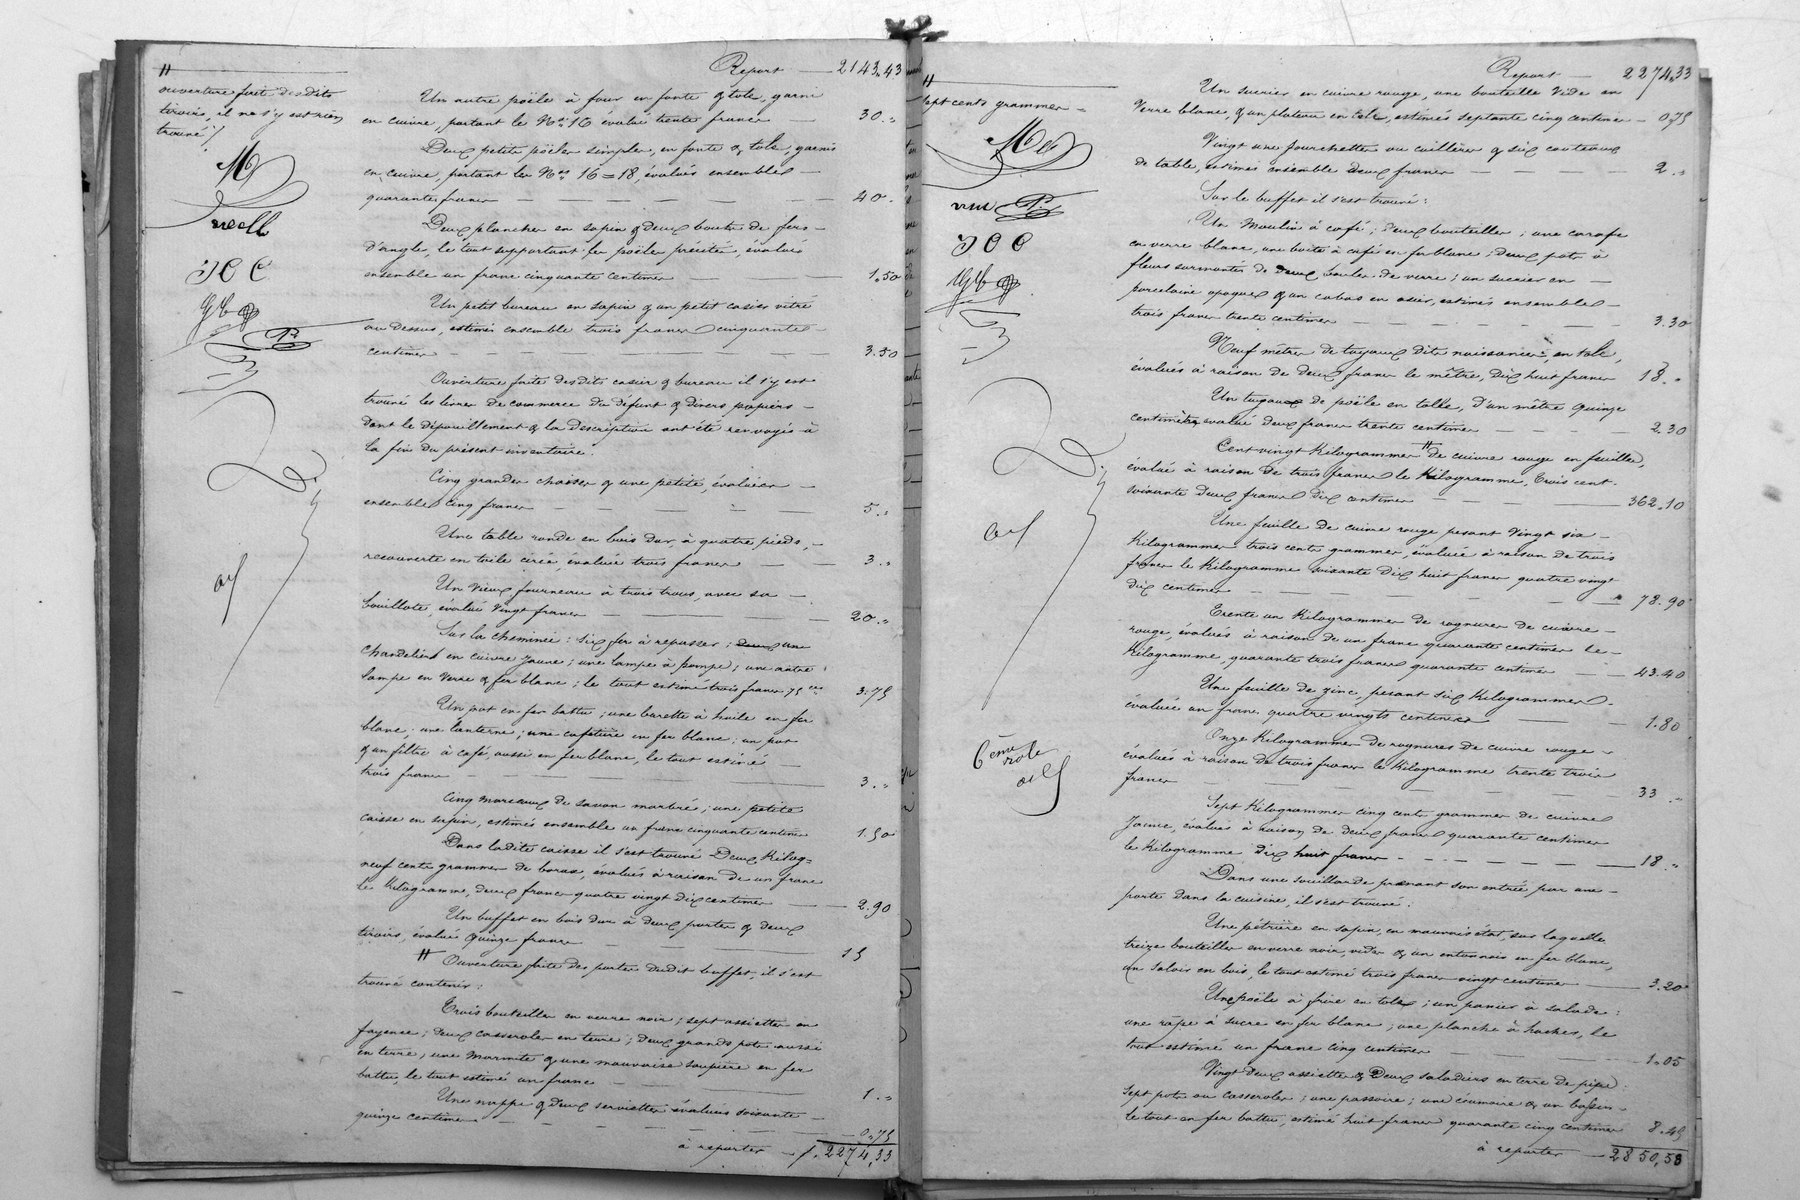 Report — 2143.43
"
ouverture faite desdits
tiroirs, il ne s'y est rien
trouvé /
Un autre poële à four en fonte & tole, garni
en cuivre, portant le No 16 évalué trente francs — 30.„
Deux petits poëles simples, en fonte & tole, garnis
en cuivre, portant les Nos 16 = 18, évalués ensemble —
quarante francs — 40.
Deux planches en sapin & deux bouts de fers
d'angle, le tout supportant les poëles précités, évalués
ensemble un franc cinquante centimes — 1.50
Un petit bureau en sapin & un petit casier vitré
au dessus, estimés ensemble trois francs cinquante
centimes — 3.50
Ouverture faite desdits casier & bureau il s'y est
trouvé les livres de commerce du défunt & divers papiers —
dont le dépouillement & la description ont été renvoyés à
la fin du présent inventaire.
Cinq grandes chaises & une petite, évaluées —
ensemble cinq francs — 5.„
Une table ronde en bois dur, à quatre pieds, —
recouverte en toile cirée, évaluée trois francs — 3.„
Un vieux fourneau à trois trous, avec sa —
bouillote, évalué vingt francs — 20.„
Sur la cheminée : six fer à repasser ; un
chandelier en cuivre jaune ; une lampe à pompe ; une autre
lampe en verre & fer blanc ; le tout estimé trois francs 75 ces 3.75
Un pot en fer battu ; une burette à huile en fer
blanc ; une lanterne ; une cafetière en fer blanc ; un pot
& un filtre à café, aussi en fer blanc, le tout estimé —
trois francs — 3.„
Cinq morceaux de savon marbré ; une petite
caisse en sapin, estimés ensemble un franc cinquante centimes 1.50
Dans ladite caisse il s'est trouvé Deux Kilog=
neuf cents grammes de borax, évalués à raison de un franc
le Kilogramme, deux francs quatre vingt dix centimes — 2.90
Un buffet en bois dur à deux portes & deux
tiroirs, évalué quinze francs — 15
" Ouverture faite des portes dudit buffet, il s'est
trouvé contenir :
Trois bouteilles en verre noir ; sept assiettes en
fayence ; deux casseroles en terre ; deux grands pots aussi
en terre ; une marmite & une mauvaise soupière en fer
battu, le tout estimé un franc — 1.„
Une nappe & deux serviettes évaluées soixante —
quinze centimes — 0.75
à reporter — f. 2274,33
Report — 2274.33
"
sept cents grammes =
Un sucrier en cuivre rouge, une bouteille vide en
verre blanc, & un plateau en tole, estimés septante cinq centimes — 0,75
Vingt une fourchettes ou cuillères & six couteaux
de table, estimés ensemble deux francs — 2.„
Sur le buffet il s'est trouvé :
Un Moulin à café ; deux bouteilles ; une carafe
en verre blanc, une boite à café en fer blanc ; deux pots à
fleurs surmontés de deux boules de verre ; un sucrier en —
porcelaine opaque & un cabas en osier, estimés ensemble —
trois francs trente centimes — 3.30
Neuf mètres de tuyaux dits naissances, en tole,
évalués à raison de deux francs le mètre, dix huit francs 18.„
Un tuyaux de poële en tolle, d'un mètre quinze
centimètres évalué deux francs trente centimes — 2.30
Cent vingt Kilogrammes " de cuivre rouge en feuilles,
évalué à raison de trois francs le Kilogramme, trois cent
soixante deux francs dix centimes — 362.10
Une feuille de cuivre rouge pesant vingt six —
Kilogrammes trois cents grammes, évaluée à raison de trois
francs le Kilogramme soixante dix huit francs quatre vingt
dix centimes — 78.90
Trente un Kilogrammes de rognures de cuivre —
rouge, évalués à raison de un franc quarante centimes le —
Kilogramme, quarante trois francs quarante centimes — 43.40
Une feuille de zinc, pesant six Kilogrammes —
évaluée un franc quatre vingts centimes — 1.80
Onze Kilogrammes de rognures de cuivre rouge —
évalués à raison de trois francs le Kilogramme trente trois
francs — 33.„
6ème
role
Sept Kilogrammes cinq cents grammes de cuivre
jaune, évalués à raison de deux francs quarante centimes
le Kilogramme dix huit francs — 18.„
Dans une souillarde prenant son entrée par une —
porte dans la cuisine, il s'est trouvé :
Une pétrière en sapin, en mauvais état, sur laquelle
treize bouteilles en verre noir, vides & un entonnois en fer blanc,
un salois en bois, le tout estimé trois francs vingt centimes — 3.20
Une poële à frire en tole ; un panier à salade ;
une râpe à sucre en fer blanc ; une planche à haches, le
tout estimé un franc cinq centimes — 1.05
Vingt deux assiettes & deux saladiers en terre de pipe ;
sept pots ou casseroles ; une passoire ; une écumoire & un bassin —
le tout en fer battu, estimé huit francs quarante cinq centimes 8.45
à reporter — 2850,58